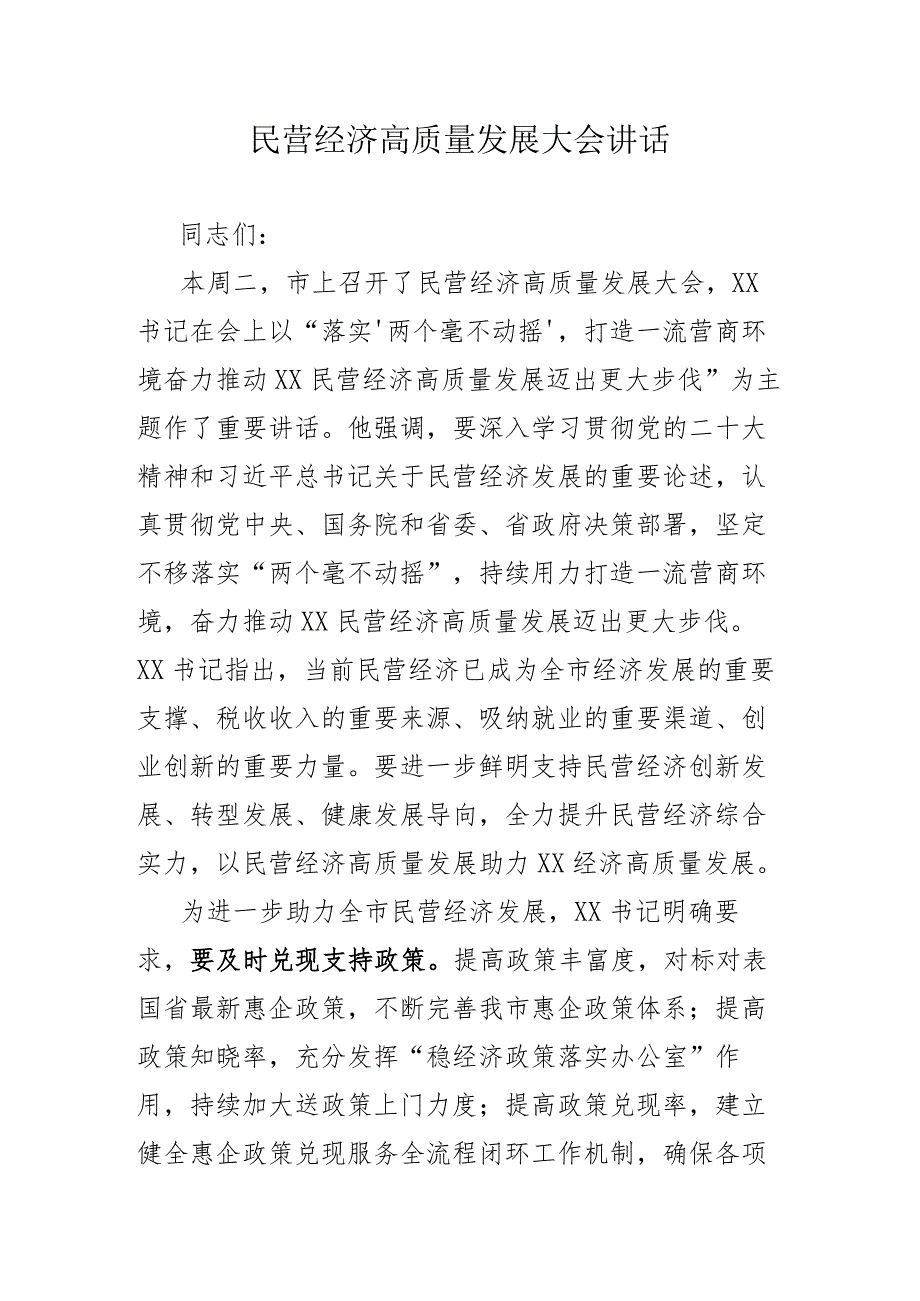 民营经济高质量发展大会讲话
同志们：
本周二，市上召开了民营经济高质量发展大会，XX
书记在会上以“落实'两个毫不动摇'，打造一流营商环
境奋力推动XX民营经济高质量发展迈出更大步伐”为主
题作了重要讲话。他强调，要深入学习贯彻党的二十大
精神和习近平总书记关于民营经济发展的重要论述，认
真贯彻党中央、国务院和省委、省政府决策部署，坚定
不移落实“两个毫不动摇”，持续用力打造一流营商环
境，奋力推动XX民营经济高质量发展迈出更大步伐。
XX书记指出，当前民营经济已成为全市经济发展的重要
支撑、税收收入的重要来源、吸纳就业的重要渠道、创
业创新的重要力量。要进一步鲜明支持民营经济创新发
展、转型发展、健康发展导向，全力提升民营经济综合
实力，以民营经济高质量发展助力XX经济高质量发展。
为进一步助力全市民营经济发展，XX书记明确要
求，要及时兑现支持政策。提高政策丰富度，对标对表
国省最新惠企政策，不断完善我市惠企政策体系；提高
政策知晓率，充分发挥“稳经济政策落实办公室”作
用，持续加大送政策上门力度；提高政策兑现率，建立
健全惠企政策兑现服务全流程闭环工作机制，确保各项